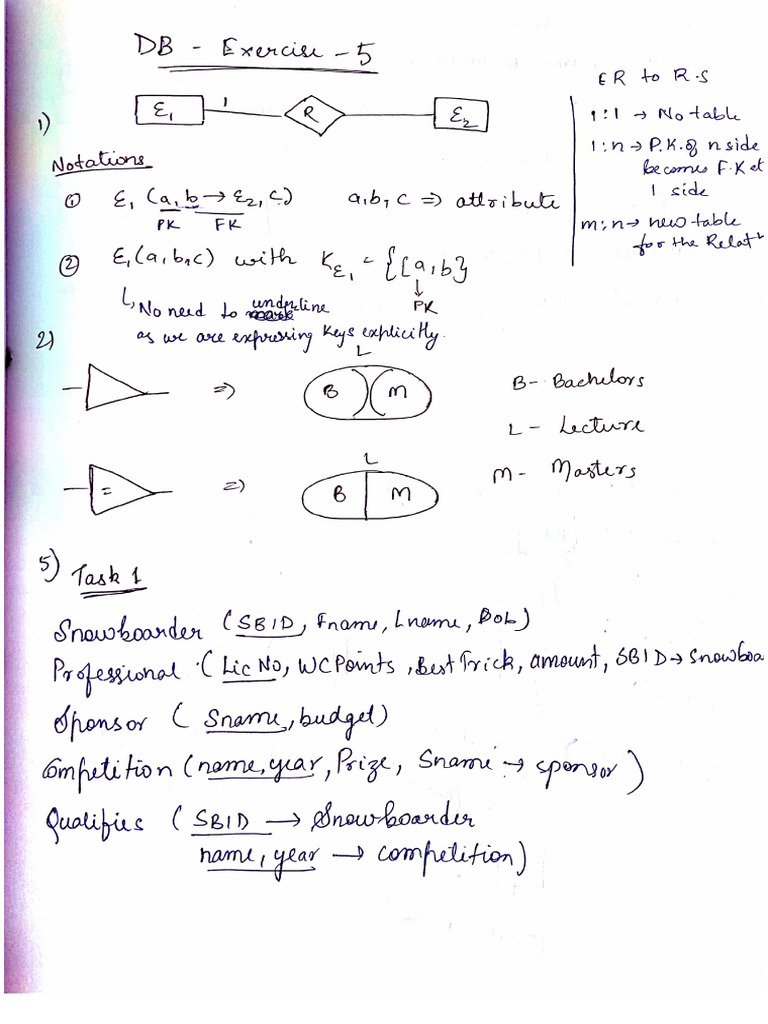 DB - Exercise - 5
ER to R.S
1) E1 1 R E2
1:1 → No table
1:n → P.K. of n side
becomes F.K at
1 side
m:n → new table
for the Relat
Notations
① E1 (a, b → E2, c) a, b, c ⇒ attribute
PK FK
② E1(a, b, c) with KE1 = {{a, b}
↳ No need to underline PK
as we are expressing Keys explicitly.
2)
L
⇒ B M
B - Bachelors
L - Lecture
M - Masters
L
= ⇒ B M
5) Task 1
Snowboarder (SBID, Fname, Lname, DoB)
Professional (Lic No, WC Points, Best Trick, amount, SBID → Snowboa
Sponsor (Sname, budget)
Competition (name, year, Prize, Sname → sponsor)
Qualifies (SBID → Snowboarder
name, year → competition)